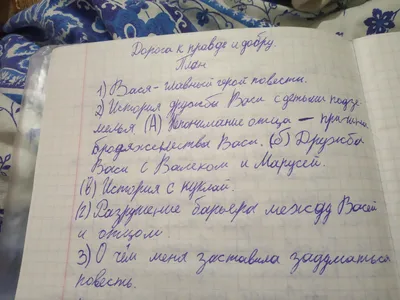 Дорога к правде и добру.
План
1) Вася - главный герой повести.
2) История дружбы Васи с детьми подзе-
мелья (А) Непонимание отца - причина
бродяжничества Васи. (б) Дружба
Васи с Валеком и Марусей.
(в) История с куклой.
(г) Разрушение барьера между Васей
и отцом.
3) О чём меня заставила задуматься
повесть.